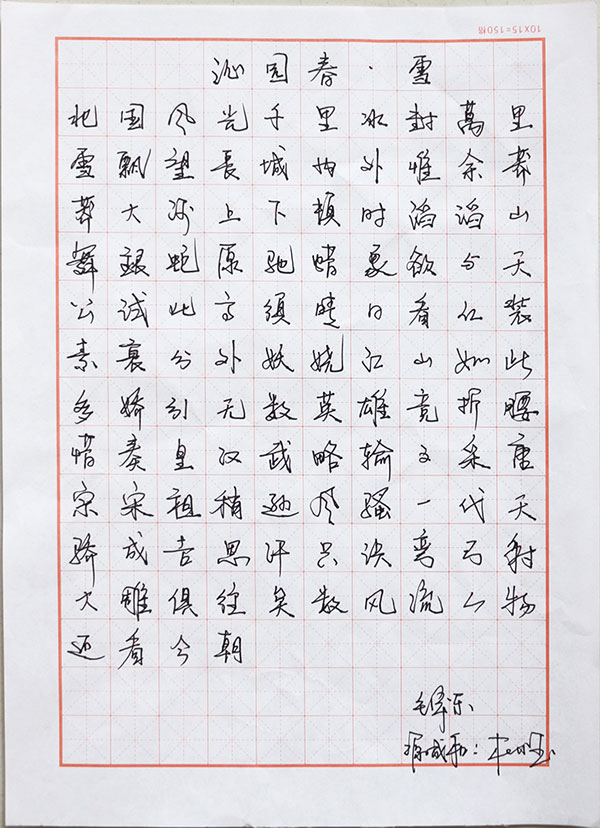 10X15=150格
沁园春·雪
北国风光千里冰封萬里
雪飘望長城内外惟余莽
莽大河上下顿时滔滔山
舞銀蛇原驰蜡象欲与天
公试比高须晴日看红装
素裹分外妖娆江山如此
多娇引无数英雄竞折腰
惜秦皇汉武略输文采唐
宗宋祖稍逊风骚一代天
骄成吉思汗只识弯弓射
大雕俱往矣数风流人物
还看今朝
毛泽东